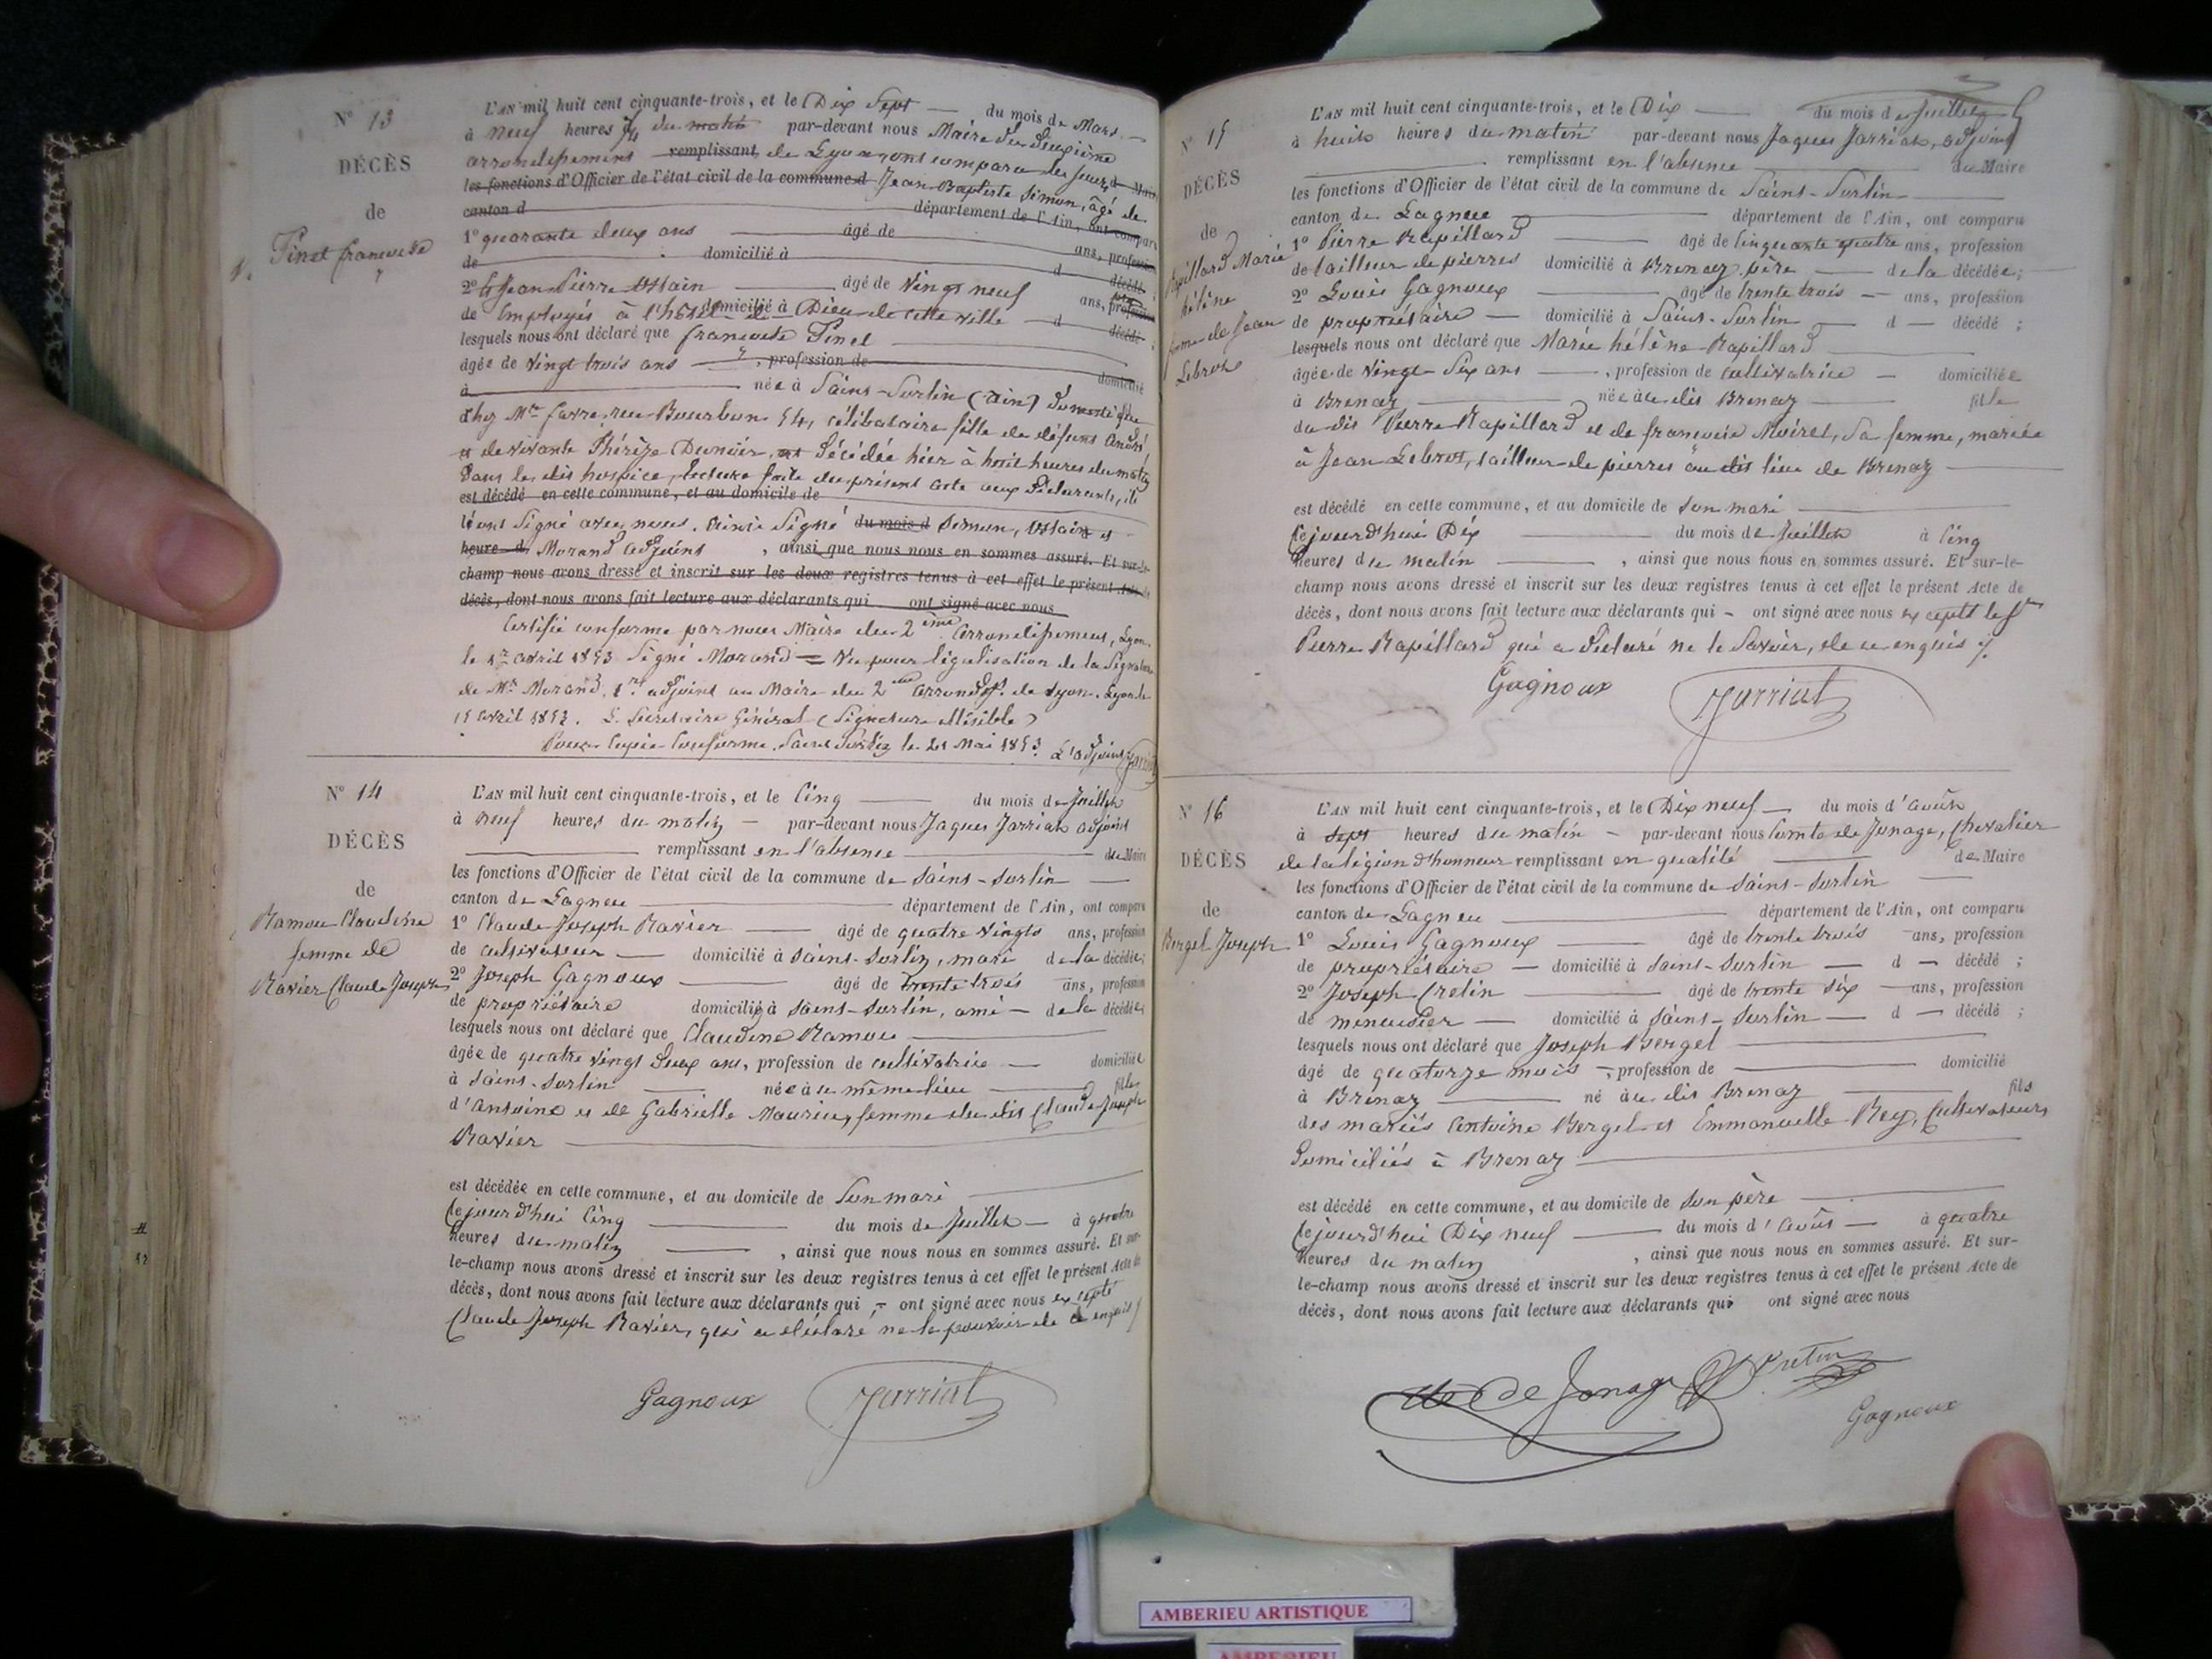 N° 13
DÉCÈS
de
Pinet françoise
L'AN mil huit cent cinquante-trois, et le Dix Sept du mois de Mars
à neuf heures du matin par-devant nous Maire du deuxième
arrondissement remplissant de Lyon ont comparu les sieurs
les fonctions d'Officier de l'état civil de la commune d Jean Baptiste Simon, âgé de
canton d département de l'Ain, ont comparu
1° quarante deux ans âgé de ans, profession
de domicilié à d décédé
2° Jean Pierre âgé de Vingt neuf ans, profession
de Employés à l'hôtel domicilié à Dieu de cette ville d décédé
lesquels nous ont déclaré que françoise Pinet
âgée de Vingt trois ans , profession de domicilié
à née à Saint-Sorlin (Ain) Domestique
chez Mr favre, rue Bourbon 54, célibataire fille de défunt André
et de vivante Thérèze Dunoier, est Décédée hier à huit heures du matin
Dans le dit hospice, lecture faite du présent acte aux Déclarants, ils
est décédé en cette commune, et au domicile de
l'ont Signé avec nous. Ainsi Signé du mois d Simon, et
heure d Morand adjoint , ainsi que nous nous en sommes assuré. Et sur-le-
champ nous avons dressé et inscrit sur les deux registres tenus à cet effet le présent Acte de
décès, dont nous avons fait lecture aux déclarants qui ont signé avec nous
Certifié conforme par nous Maire du 2ème arrondissement, Lyon
le avril 1853 Signé Morand = Vu pour légalisation de la Signature
de Mr Morand, 1er adjoint au Maire du 2me arrondt. de Lyon. Lyon le
15 avril 1853. L. Secrétaire Général (Signature illisible)
Pour Copie Conforme. Saint Sorlin le 21 Mai 1853. L'adjoint Jarriat
N° 14
DÉCÈS
de
Ramou Claudine
femme de
Ravier Claude Joseph
L'AN mil huit cent cinquante-trois, et le Cinq du mois de Juillet
à neuf heures du matin par-devant nous Jaques Jarriat adjoint
remplissant en l'absence du Maire
les fonctions d'Officier de l'état civil de la commune de Saint-Sorlin
canton de Lagneu département de l'Ain, ont comparu
1° Claude Joseph Ravier âgé de quatre vingts ans, profession
de cultivateur domicilié à Saint-Sorlin, mari de la décédée;
2° Joseph Gagnoux âgé de trente trois ans, profession
de propriétaire domicilié à Saint-Sorlin, ami de la décédée;
lesquels nous ont déclaré que Claudine Ramou
âgée de quatre vingt Deux ans, profession de cultivatrice domiciliée
à Saint-Sorlin née à ce même lieu fille
d'Antoine et de Gabrielle Maurice, femme du dit Claude Joseph
Ravier
est décédée en cette commune, et au domicile de Son mari
Cejourd'hui Cinq du mois de Juillet à quatre
heures du matin , ainsi que nous nous en sommes assuré. Et sur-
le-champ nous avons dressé et inscrit sur les deux registres tenus à cet effet le présent Acte de
décès, dont nous avons fait lecture aux déclarants qui ont signé avec nous excepté
Claude Joseph Ravier, qui a déclaré ne le pouvoir de ce enquis
Gagnoux Jarriat
N° 15
DÉCÈS
de
Rapillard Marie
hélène
femme de Jean
Lebrot
L'AN mil huit cent cinquante-trois, et le Dix du mois de Juillet
à huit heures du matin par-devant nous Jaques Jarriat, adjoint
remplissant en l'absence du Maire
les fonctions d'Officier de l'état civil de la commune de Saint-Sorlin
canton de Lagneu département de l'Ain, ont comparu
1° Pierre Rapillard âgé de Cinquante quatre ans, profession
de tailleur de pierres domicilié à Brenaz, père de la décédée;
2° Louis Gagnoux âgé de trente trois ans, profession
de propriétaire domicilié à Saint-Sorlin d décédé ;
lesquels nous ont déclaré que Marie hélène Rapillard
âgée de Vingt Six ans , profession de cultivatrice domiciliée
à Brenaz née à u dit Brenaz fille
du dit Pierre Rapillard et de françoise Moiret, Sa femme, mariée
à Jean Lebrot, tailleur de pierres au dit lieu de Brenaz
est décédé en cette commune, et au domicile de Son mari
Cejourd'hui Dix du mois de Juillet à Cinq
heures du matin , ainsi que nous nous en sommes assuré. Et sur-le-
champ nous avons dressé et inscrit sur les deux registres tenus à cet effet le présent Acte de
décès, dont nous avons fait lecture aux déclarants qui ont signé avec nous excepté le Sr
Pierre Rapillard qui a Déclaré ne le Savoir, de ce enquis
Gagnoux Jarriat
N° 16
DÉCÈS
de
Bergel Joseph
L'AN mil huit cent cinquante-trois, et le Dix neuf du mois d'août
à Sept heures du matin par-devant nous Comte de Jonage, Chevalier
de la légion d'honneur remplissant en qualité de Maire
les fonctions d'Officier de l'état civil de la commune de Saint-Sorlin
canton de Lagneu département de l'Ain, ont comparu
1° Louis Gagnoux âgé de trente trois ans, profession
de propriétaire domicilié à Saint-Sorlin d décédé ;
2° Joseph Cretin âgé de trente Six ans, profession
de menuisier domicilié à Saint-Sorlin d décédé ;
lesquels nous ont déclaré que Joseph Bergel
âgé de quatorze mois , profession de domicilié
à Brenaz né à u dit Brenaz fils
des mariés Antoine Bergel et Emmanuelle Rey, Cultivateurs
Domiciliés à Brenaz
est décédé en cette commune, et au domicile de Son père
Cejourd'hui Dix neuf du mois d'Août à quatre
heures du matin , ainsi que nous nous en sommes assuré. Et sur-
le-champ nous avons dressé et inscrit sur les deux registres tenus à cet effet le présent Acte de
décès, dont nous avons fait lecture aux déclarants qui ont signé avec nous
de Jonage Cretin
Gagnoux
AMBERIEU ARTISTIQUE
AMBERIEU